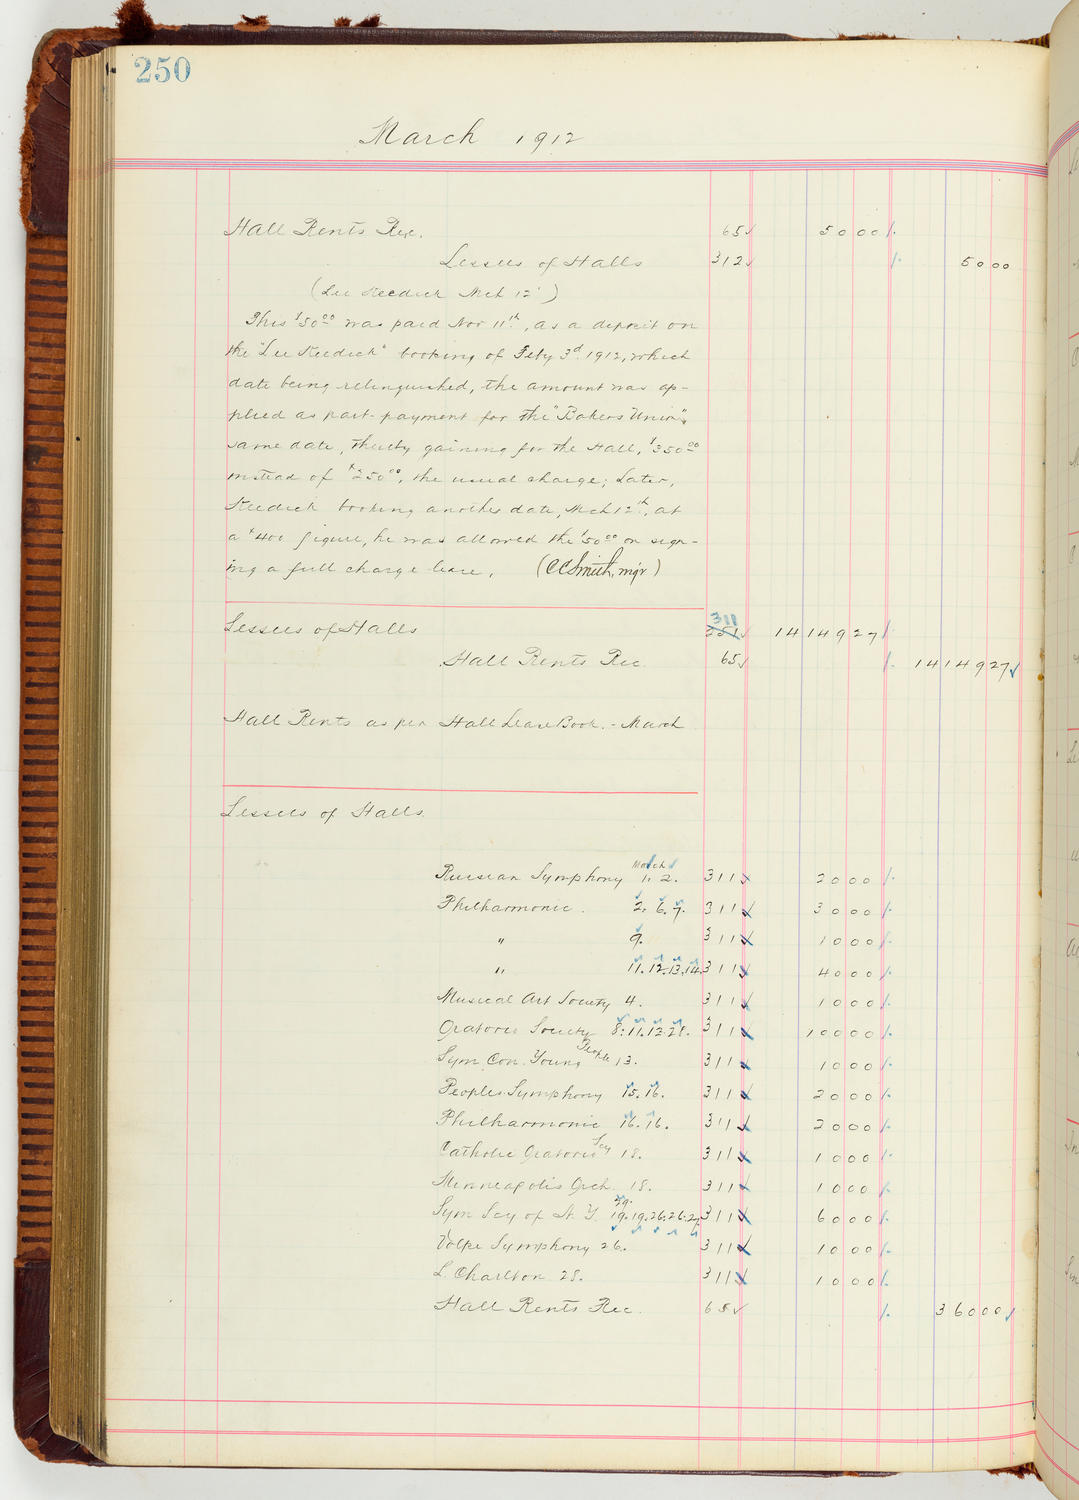 250
March 1912
Hall Rents Rec. 65 50 00
Lessees of Halls 312 50 00
(Lee Keedick Mch 12")
This $50.00 was paid Nov 11th, as a deposit on
the "Lee Keedick" booking of Feby 3d. 1912, which
date being relinquished, the amount was ap-
plied as part-payment for the "Bakers Union",
same date, thereby gaining for the Hall, $350.00
instead of $250.00, the usual charge; Later,
Keedick booking another date, Mch 12th, at
a $400 figure, he was allowed the $50.00 on sign-
ing a full charge lease. (CCSmith, mgr)
311
Lessees of Halls 251 14149 27
Hall Rents Rec 65 14149 27
Hall Rents as per Hall Lease Book. - March
Lessees of Halls.
March
Russian Symphony 1. 2. 311 20 00
Philharmonic. 2. 6. 7. 311 30 00
" 9. 311 10 00
" 11. 12. 13. 14. 311 40 00
Musical Art Society 4. 311 10 00
Oratorio Society 8. 11. 12. 28. 311 100 00
Sym. Con. Young People 13. 311 10 00
Peoples Symphony 15. 16. 311 20 00
Philharmonic 16. 16. 311 20 00
Catholic Oratorio Socy 18. 311 10 00
Minneapolis Orch. 18. 311 10 00
29.
Sym Socy of N. Y. 19. 19. 26. 26. 27. 311 60 00
Volpe Symphony 26. 311 10 00
L. Charlton 28. 311 10 00
Hall Rents Rec. 65 360 00